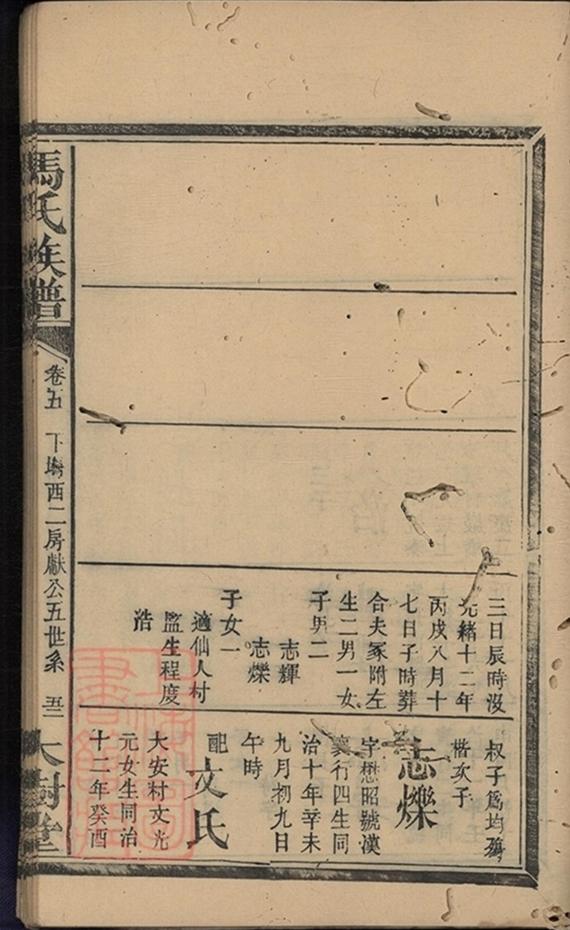 三日辰時沒
光緒十二年
丙戌八月十
七日子時葬
合夫冢附左
生二男一女
子男二
志輝
志爍
子女一
適仙人村
監生程度
浩
叔子爲均
楷次子
志爍
字懋昭號漢
襄行四生同
治十年辛未
九月初九日
午時
配文氏
大安村文光
元女生同治
十二年癸酉
馬氏族譜
卷五
下塆西二房獻公五世系
大樹堂